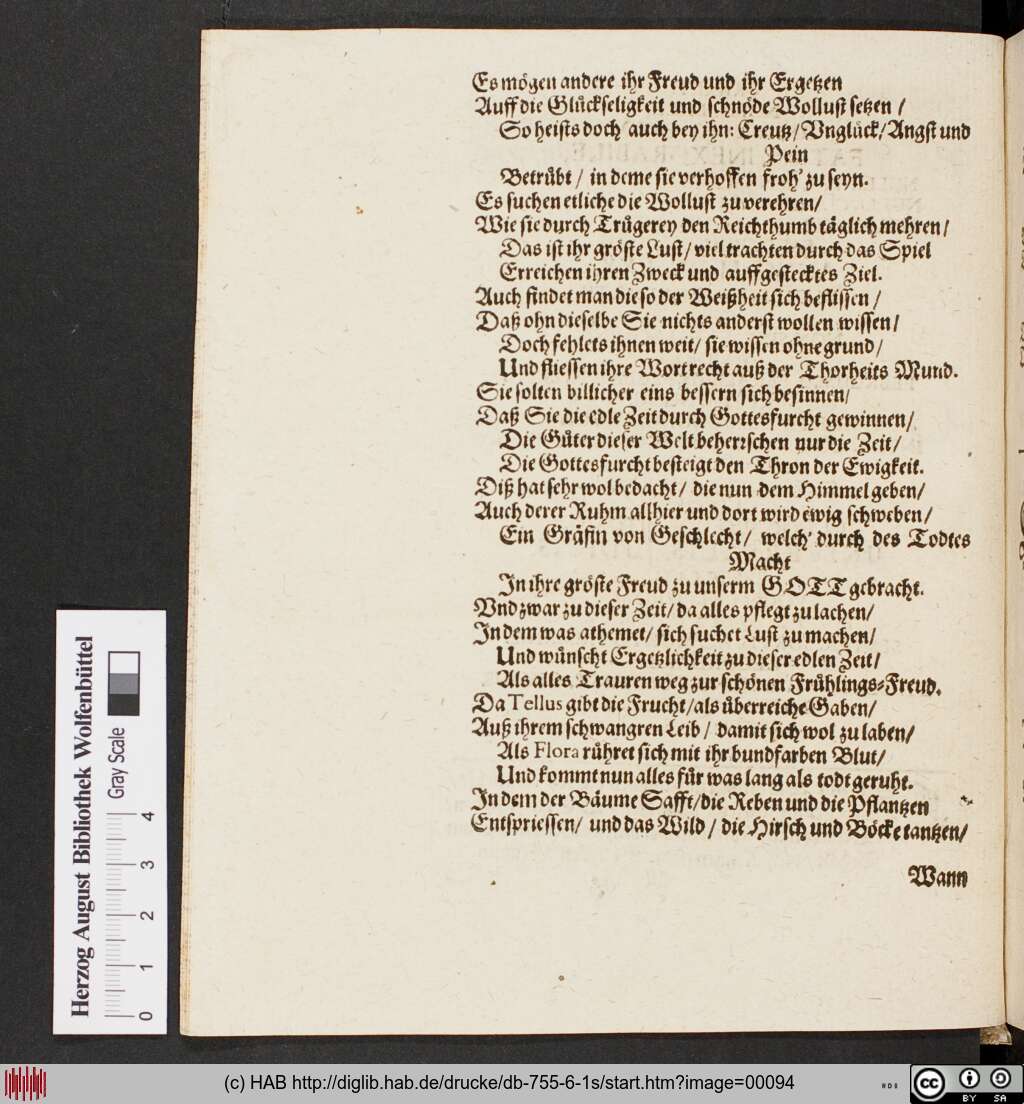 Es mögen andere ihr Freud und ihr Ergetzen
Auff die Glückseligkeit und schnöde Wollust setzen /
So heists doch auch bey ihn: Creutz / Vnglück / Angst und
Pein
Betrübt / in deme sie verhoffen froh' zu seyn.
Es suchen etliche die Wollust zu verehren /
Wie sie durch Trügerey den Reichthumb täglich mehren /
Das ist ihr gröste Lust / viel trachten durch das Spiel
Erreichen ihren Zweck und auffgestecktes Ziel.
Auch findet man die so der Weißheit sich beflissen /
Daß ohn dieselbe Sie nichts anderst wollen wissen /
Doch fehlets ihnen weit / sie wissen ohne grund /
Und fliessen ihre Wort recht auß der Thorheits Mund.
Sie solten billicher eins bessern sich besinnen /
Daß Sie die edle Zeit durch Gottesfurcht gewinnen /
Die Güter dieser Welt beherrschen nur die Zeit /
Die Gottesfurcht besteigt den Thron der Ewigkeit.
Diß hat sehr wol bedacht / die nun dem Himmel geben /
Auch derer Ruhm allhier und dort wird ewig schweben /
Ein Gräfin von Geschlecht / welch' durch des Todtes
Macht
In ihre gröste Freud zu unserm GOTT gebracht.
Vnd zwar zu dieser Zeit / da alles pflegt zu lachen /
In dem was athemet / sich suchet Lust zu machen /
Und wünscht Ergetzlichkeit zu dieser edlen Zeit /
Als alles Trauren weg zur schönen Frühlings-Freud.
Da Tellus gibt die Frucht / als überreiche Gaben /
Auß ihrem schwangren Leib / damit sich wol zu laben /
Als Flora rühret sich mit ihr bundfarben Blut /
Und kommt nun alles für was lang als todt geruht.
In dem der Bäume Safft / die Reben und die Pflantzen
Entspriessen / und das Wild / die Hirsch und Böcke tantzen /
Wann
Herzog August Bibliothek Wolfenbüttel
Gray Scale
0 1 2 3 4
(c) HAB http://diglib.hab.de/drucke/db-755-6-1s/start.htm?image=00094
cc BY SA